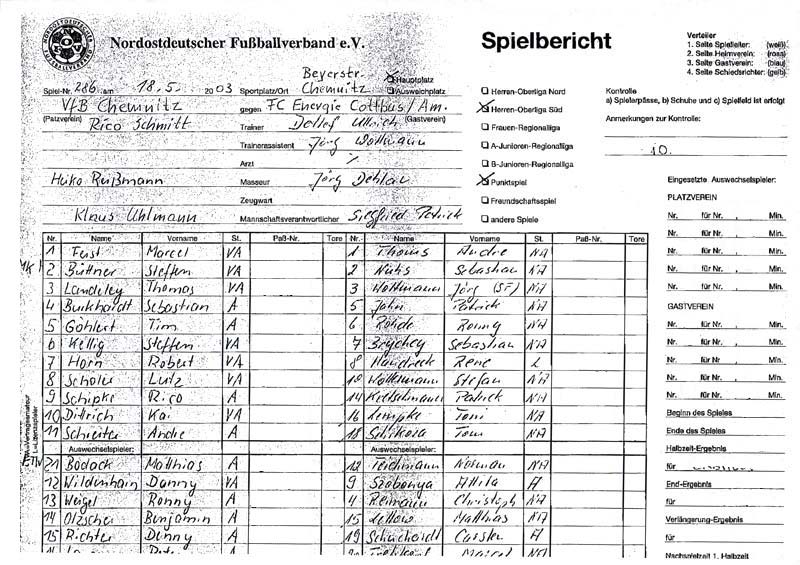 NORDOSTDEUTSCHER FUSSBALLVERBAND
Nordostdeutscher Fußballverband e.V.
Spielbericht
Verteiler
1. Seite Spielleiter: (weiß)
2. Seite Heimverein: (rosa)
3. Seite Gastverein: (blau)
4. Seite Schiedsrichter: (gelb)
Spiel-Nr. 286 am 18.5. 2003 Sportplatz/Ort Beyerstr. Chemnitz Hauptplatz Ausweichplatz
VfB Chemnitz gegen FC Energie Cottbus/Am.
(Patzverein) Rico Schmitt Trainer Detlef Ullrich (Gastverein)
Trainerassistent Jörg Wottmann
Arzt %
Heiko Rußmann Masseur Jörg Dehlau
Zeugwart
Klaus Uhlmann Mannschaftsverantwortlicher Siegfried Patrick
Herren-Oberliga Nord
Herren-Oberliga Süd
Frauen-Regionalliga
A-Junioren-Regionalliga
B-Junioren-Regionalliga
Punktspiel
Freundschaftsspiel
andere Spiele
Kontrolle
a) Spielerpässe, b) Schuhe und c) Spielfeld ist erfolgt
Anmerkungen zur Kontrolle:
Eingesetzte Auswechselspieler:
PLATZVEREIN
Nr. für Nr. , Min.
Nr. für Nr. , Min.
Nr. für Nr. , Min.
Nr. für Nr. , Min.
GASTVEREIN
Nr. für Nr. , Min.
Nr. für Nr. , Min.
Nr. für Nr. , Min.
Nr. für Nr. , Min.
Beginn des Spieles
Ende des Spieles
Halbzeit-Ergebnis
für
End-Ergebnis
für
Verlängerung-Ergebnis
für
Nachspielzeit 1. Halbzeit
Nr. Name Vorname St. Paß-Nr. Tore Nr. Name Vorname St. Paß-Nr. Tore
1 Feist Marcel VA 1 Thoms Andre NA
2 Büttner Steffen VA 2 Sebastian NA
3 Landeley Thomas VA 3 Wottmann Jörg (SF) NA
4 Burkhardt Sebastian A 5 Jahn Patrick NA
5 Göhlert Tim A 6 Rohde Ronny NA
6 Kellig Steffen VA 7 Sebastian NA
7 Horn Robert VA 8 Handreck Rene L
8 Scholer Lutz VA 10 Stefan NA
9 Schipke Rico A 14 Patrick NA
10 Dittrich Kai VA 16 Lempke Toni NA
11 Schierter Andre A 18 Sebikora Tom NA
Auswechselspieler: Auswechselspieler:
21 Bodack Matthias A 12 Teichmann Norman NA
12 Wildenhain Danny VA 9 Szobonya Attila A
13 Weigel Ronny A 4 Reimann Christoph NA
14 Olzscher Benjamin A 15 Lettow Matthias NA
15 Richter Denny A 19 Schuchardt Carsten A